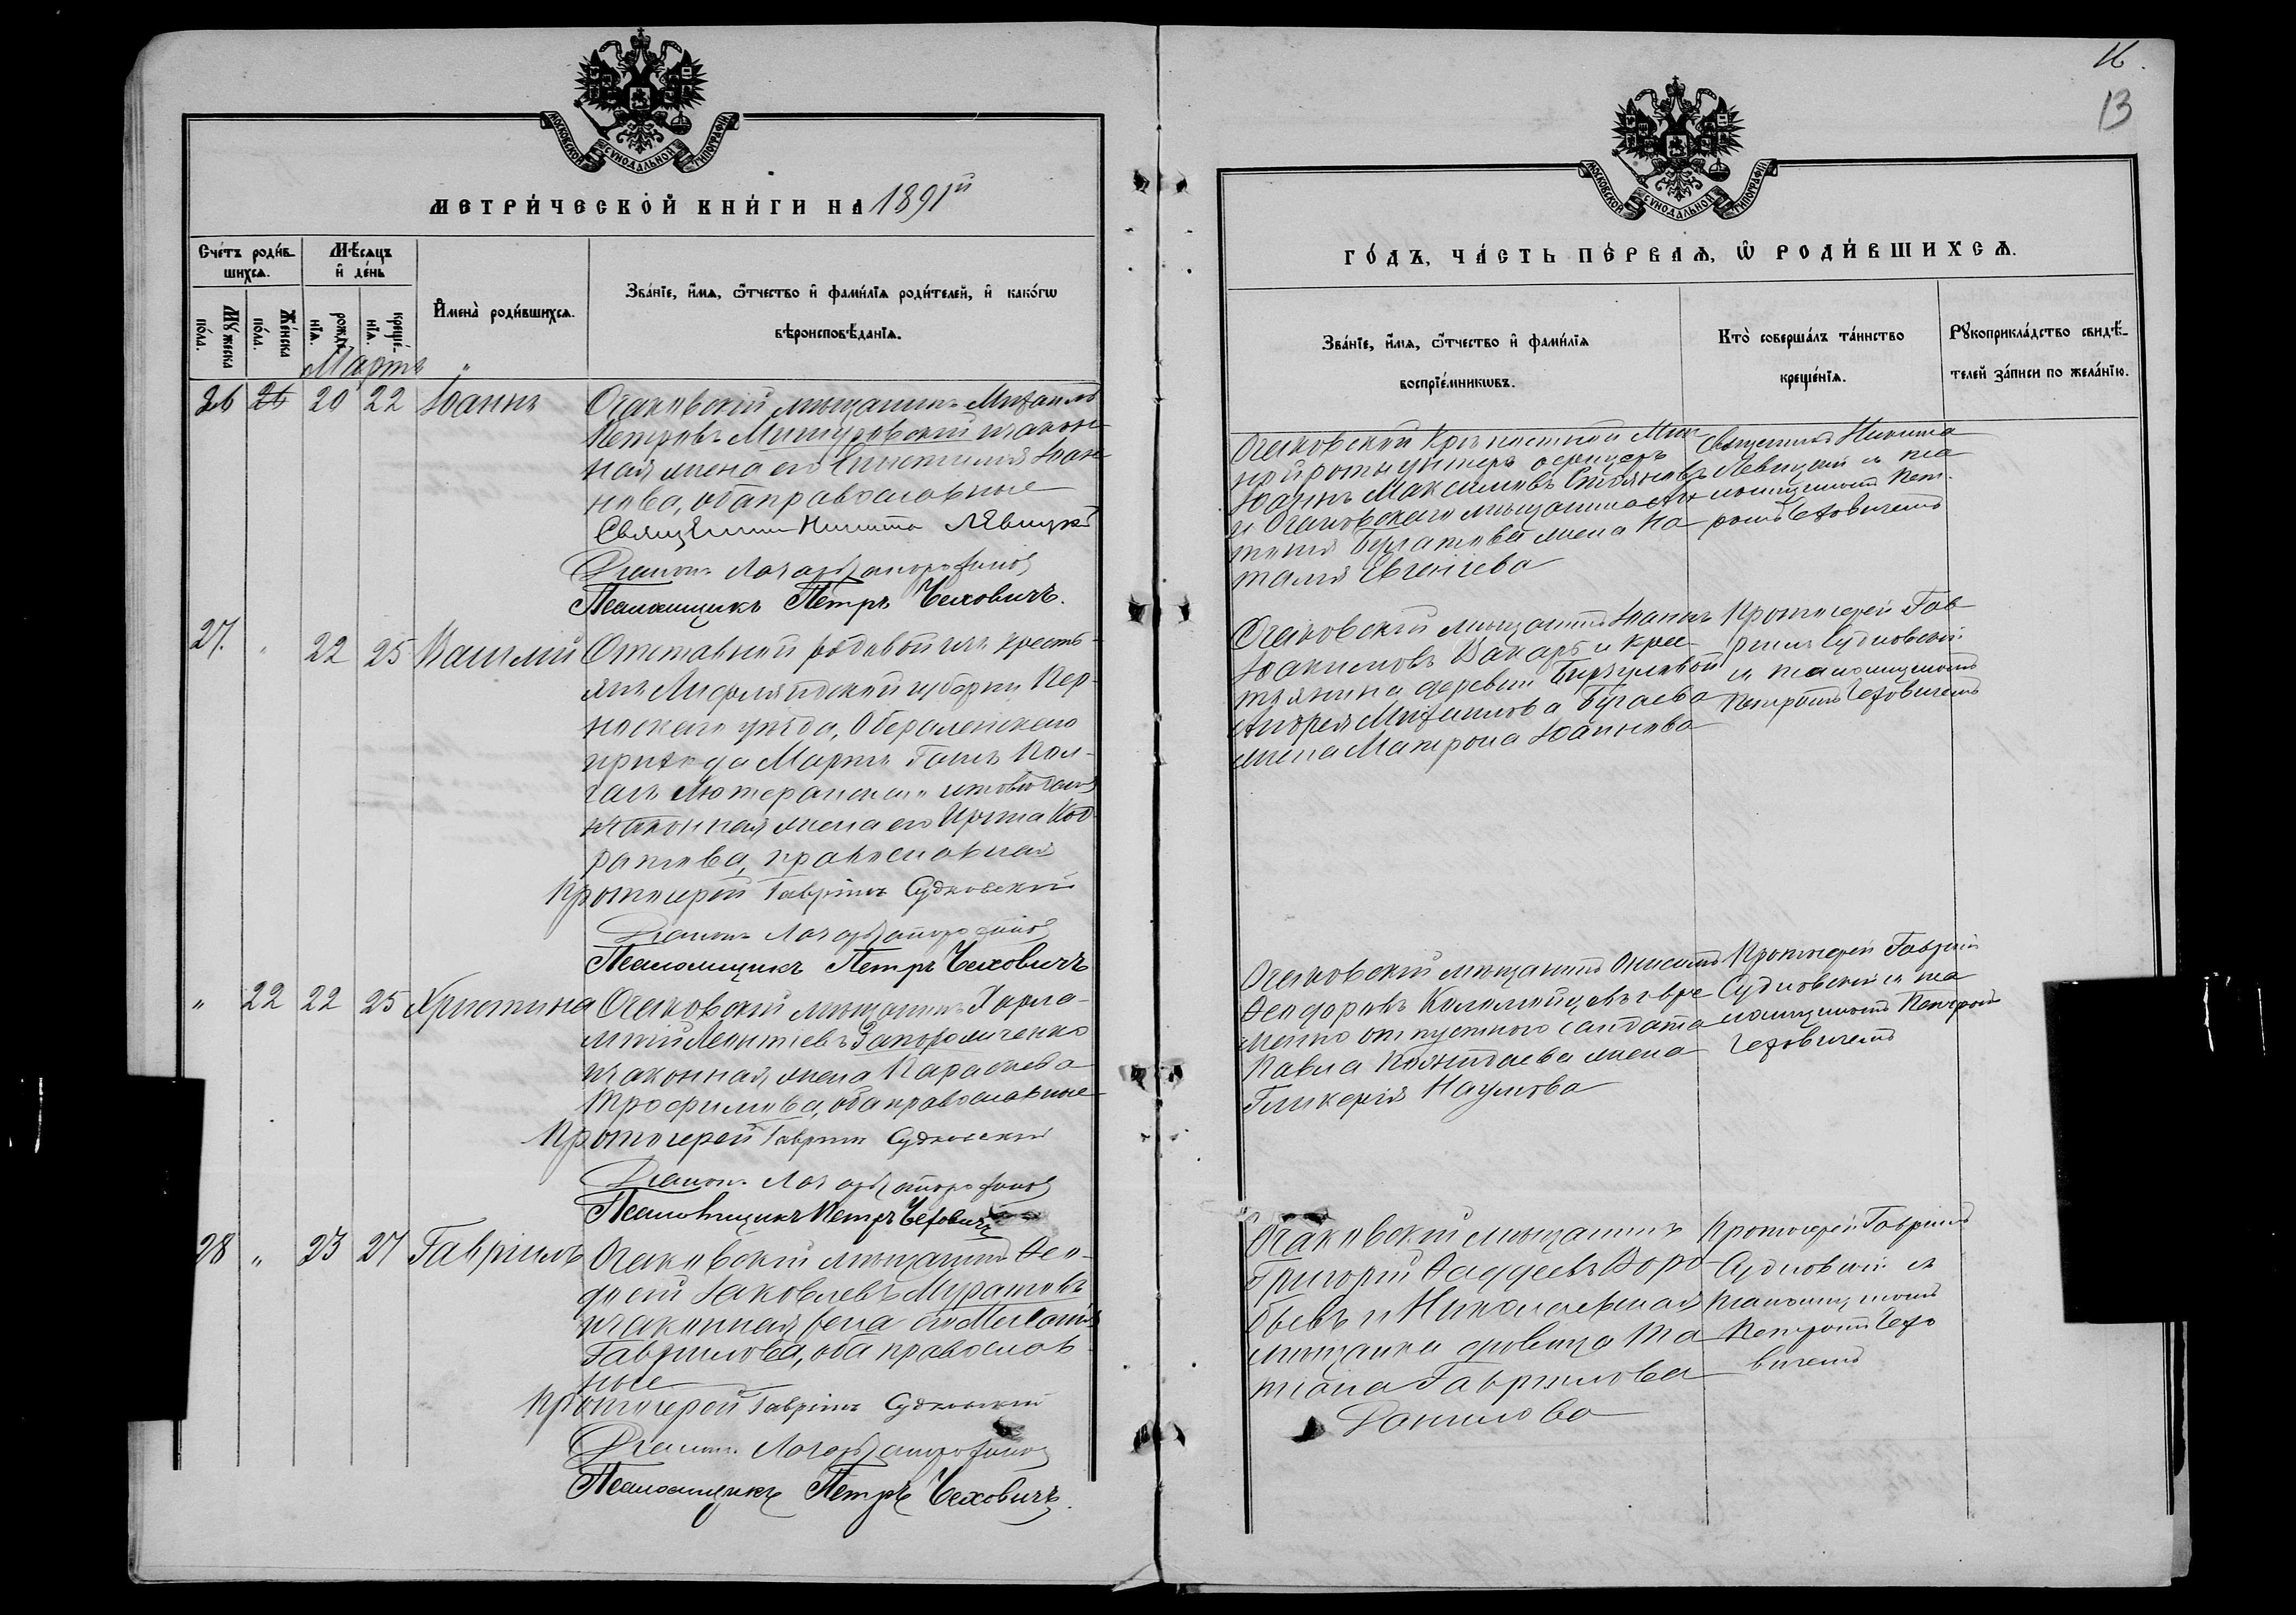 МОСКОВСКОЙ СУНОДАЛЬНОЙ ТИПОГРАФІИ
МЕТРИ́ЧЕСКОЙ КНИ́ГИ НА 1891й
Сче́тъ роди́в-
шихся.
Мѣ́сяцъ
и҆ де́нь
И҆мена̀ роди́вшихся.
Зва́нїе, и҆́мя, ѻ҆́тчество и҆ фами́лїя роди́телей, и҆ како́гѡ
вѣроисповѣ́данїя.
Мꙋ́жеска
по́ла.
Же́нска
по́ла.
рожде́-
нїя.
креще́-
нїя.
Мартъ
26 20 22 Іоаннъ Очаковскій мѣщанинъ Михаилъ
Петровъ и закон-
ная жена его Іоан-
нова, оба православные
Священникъ Никита Лѣвицкій
Діаконъ
Псаломщикъ Петръ Чеховичъ.
27. " 22 25 Василій Отставной рядовой изъ кресть-
янъ Лифляндской губерніи Пер-
новскаго уѣзда,
прихода Мартъ
Лютеранскаго исповѣданія
и законная жена его Ирина Код-
ратова, православная
Протоіерей Гавріилъ Судковскій
Діаконъ
Псаломщикъ Петръ Чеховичъ
" 22 22 25 Христина Очаковскій мѣщанинъ Харла-
мпій Леонтіевъ
и законная жена Параскева
Трофимова, оба православные
Протоіерей Гавріилъ Судковскій
Діаконъ
Псаломщикъ Петръ Чеховичъ
28 " 23 27 Гавріилъ Очаковскій мѣщанинъ Ѳео-
досій Іаковлевъ Муратовъ
и законная жена его Меланія
Гавриилова, оба православ
ные
Протоіерей Гавріилъ Судковскій
Діаконъ
Псаломщикъ Петръ Чеховичъ.
16.
13
МОСКОВСКОЙ СУНОДАЛЬНОЙ ТИПОГРАФІИ
ГО́ДЪ, ЧА́СТЬ ПЕ́РВАЯ, Ѡ҆ РОДИ́ВШИХСЯ.
Зва́нїе, и҆́мя, ѻ҆́тчество и҆ фами́лїя
воспрїе́мникѡвъ.
Кто̀ соверша́лъ та́инство
креще́нїя.
Рꙋкоприкла́дство свидѣ́-
телей за́писи по жела́нїю.
Очаковской Крѣпостной Мин-
ной роты унтеръ офицеръ
Іоаннъ Максимовъ
и Очаковскаго мѣщанина
жена На-
талія Евгеніева
Священникъ Никита
Лѣвицкій съ пса-
ломщикомъ Пет-
ромъ Чеховичемъ
Очаковскій мѣщанинъ Іоаннъ
Іоакимовъ и крес-
тьянина деревни
Андрея Михаилова Бугаева
жена Матрона Іоаннова
Протоіерей Гав-
ріилъ Судковскій
съ псаломщикомъ
Петромъ Чеховичемъ
Очаковскій мѣщанинъ Онисимъ
Ѳеодоровъ Коломойцевъ и вре-
менно отпускного солдата
Павла жена
Гликерія Наумова
Протоіерей Гавріилъ
Судковскій съ пса-
ломщикомъ Петромъ
Чеховичемъ
Очаковскій мѣщанинъ
Григорій Ѳаддеевъ Воро-
бьевъ и Николаевская
мѣщанка дѣвица Та-
тіана Гавриилова
Данилова
Протоіерей Гавріилъ
Судковскій съ
псаломщикомъ
Петромъ Чехо-
вичемъ